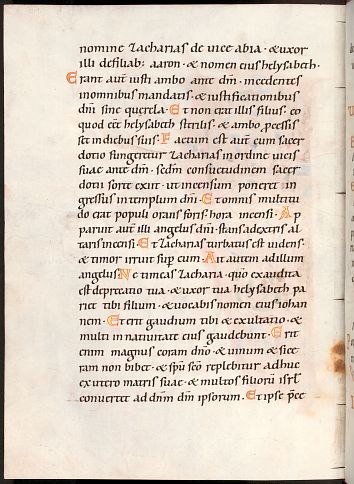 nomine Zacharias de vice abia · & uxor
illi defiliab; aaron · & nomen eius helysabeth ·
Erant aut iusti ambo ante dm̄ · incedentes
inomnibus mandatis · & iustificationibus
dm̄ sine querela · Et non erat illis filius · eo
quod eēt helysabeth sterilis · & ambo p̄cessis
set indiebus suis · Factum est aut̄ cum sacer
dotio fungeretur Zacharias inordine vicis
suae ante dm̄ · sc̄dm consuetudinem sacer
dotii sorte exiit · ut incensum poneret in
gressus intemplum dm̄i · Et omnis multitu
do erat populi orans foris · hora incensi · Ap
paruit aut̄ illi angelus dm̄i · stans adextris al
taris incensi · Et Zacharias turbatus est videns ·
& timor irruit sup̄ eum · Ait autem adillum
angelus Ne timeas Zacharia · quō exaudita
est deprecatio tua · & uxor tua helysabeth pa
riet tibi filium · & vocabis nomen eius iohan
nem · Et erit gaudium tibi & exultatio · &
multi innativitate eius gaudebunt · Erit
enim magnus coram dn̄o · & vinum & sice
ram non bibet · & spū sc̄o replebitur adhuc
exutero matris suae · & multos filiorū isrł
convertet ad dnm̄ dm̄ ipsorum · Et ipse p̄ce